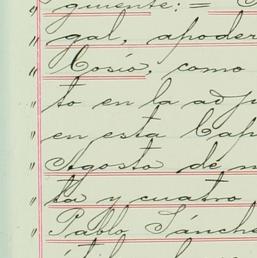 " guiente: =
" gal, apoder
" Cosío, como
" to en la adju
" en esta Cap
" Agosto de m
" ta y cuatro
" Pablo Sánche